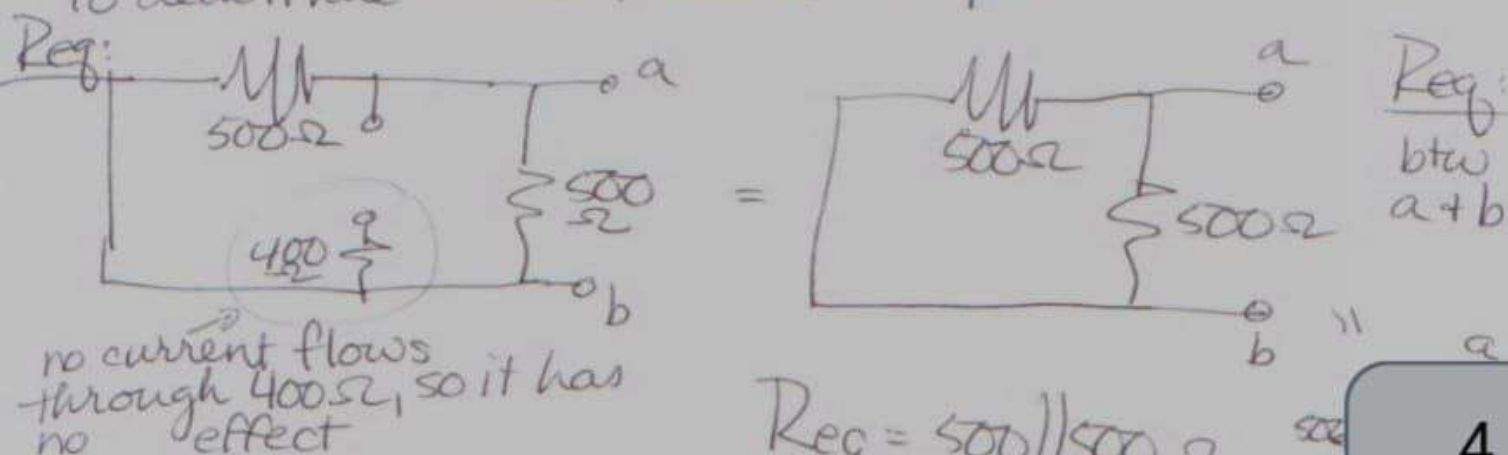 Req:
500Ω
a
500
Ω
400
b
no current flows
through 400Ω, so it has
no effect
=
500Ω
a
500Ω
b
Req:
btw
a + b
"
a
Req = 500||500 Ω
4